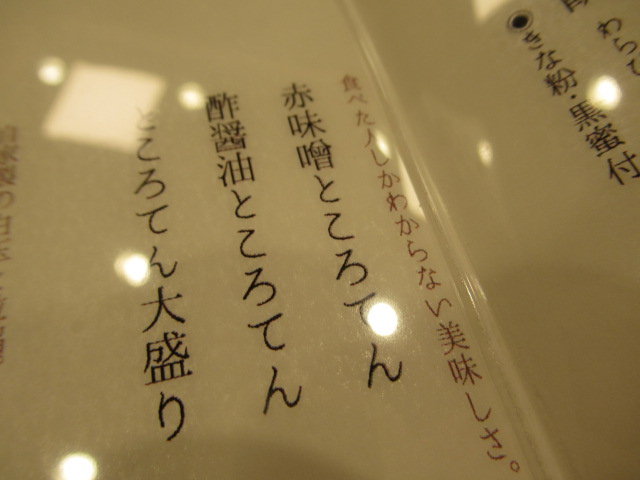 わらび
きな粉・黒蜜付
食べた人しかわからない美味しさ。
赤味噌ところてん
酢醤油ところてん
ところてん大盛り